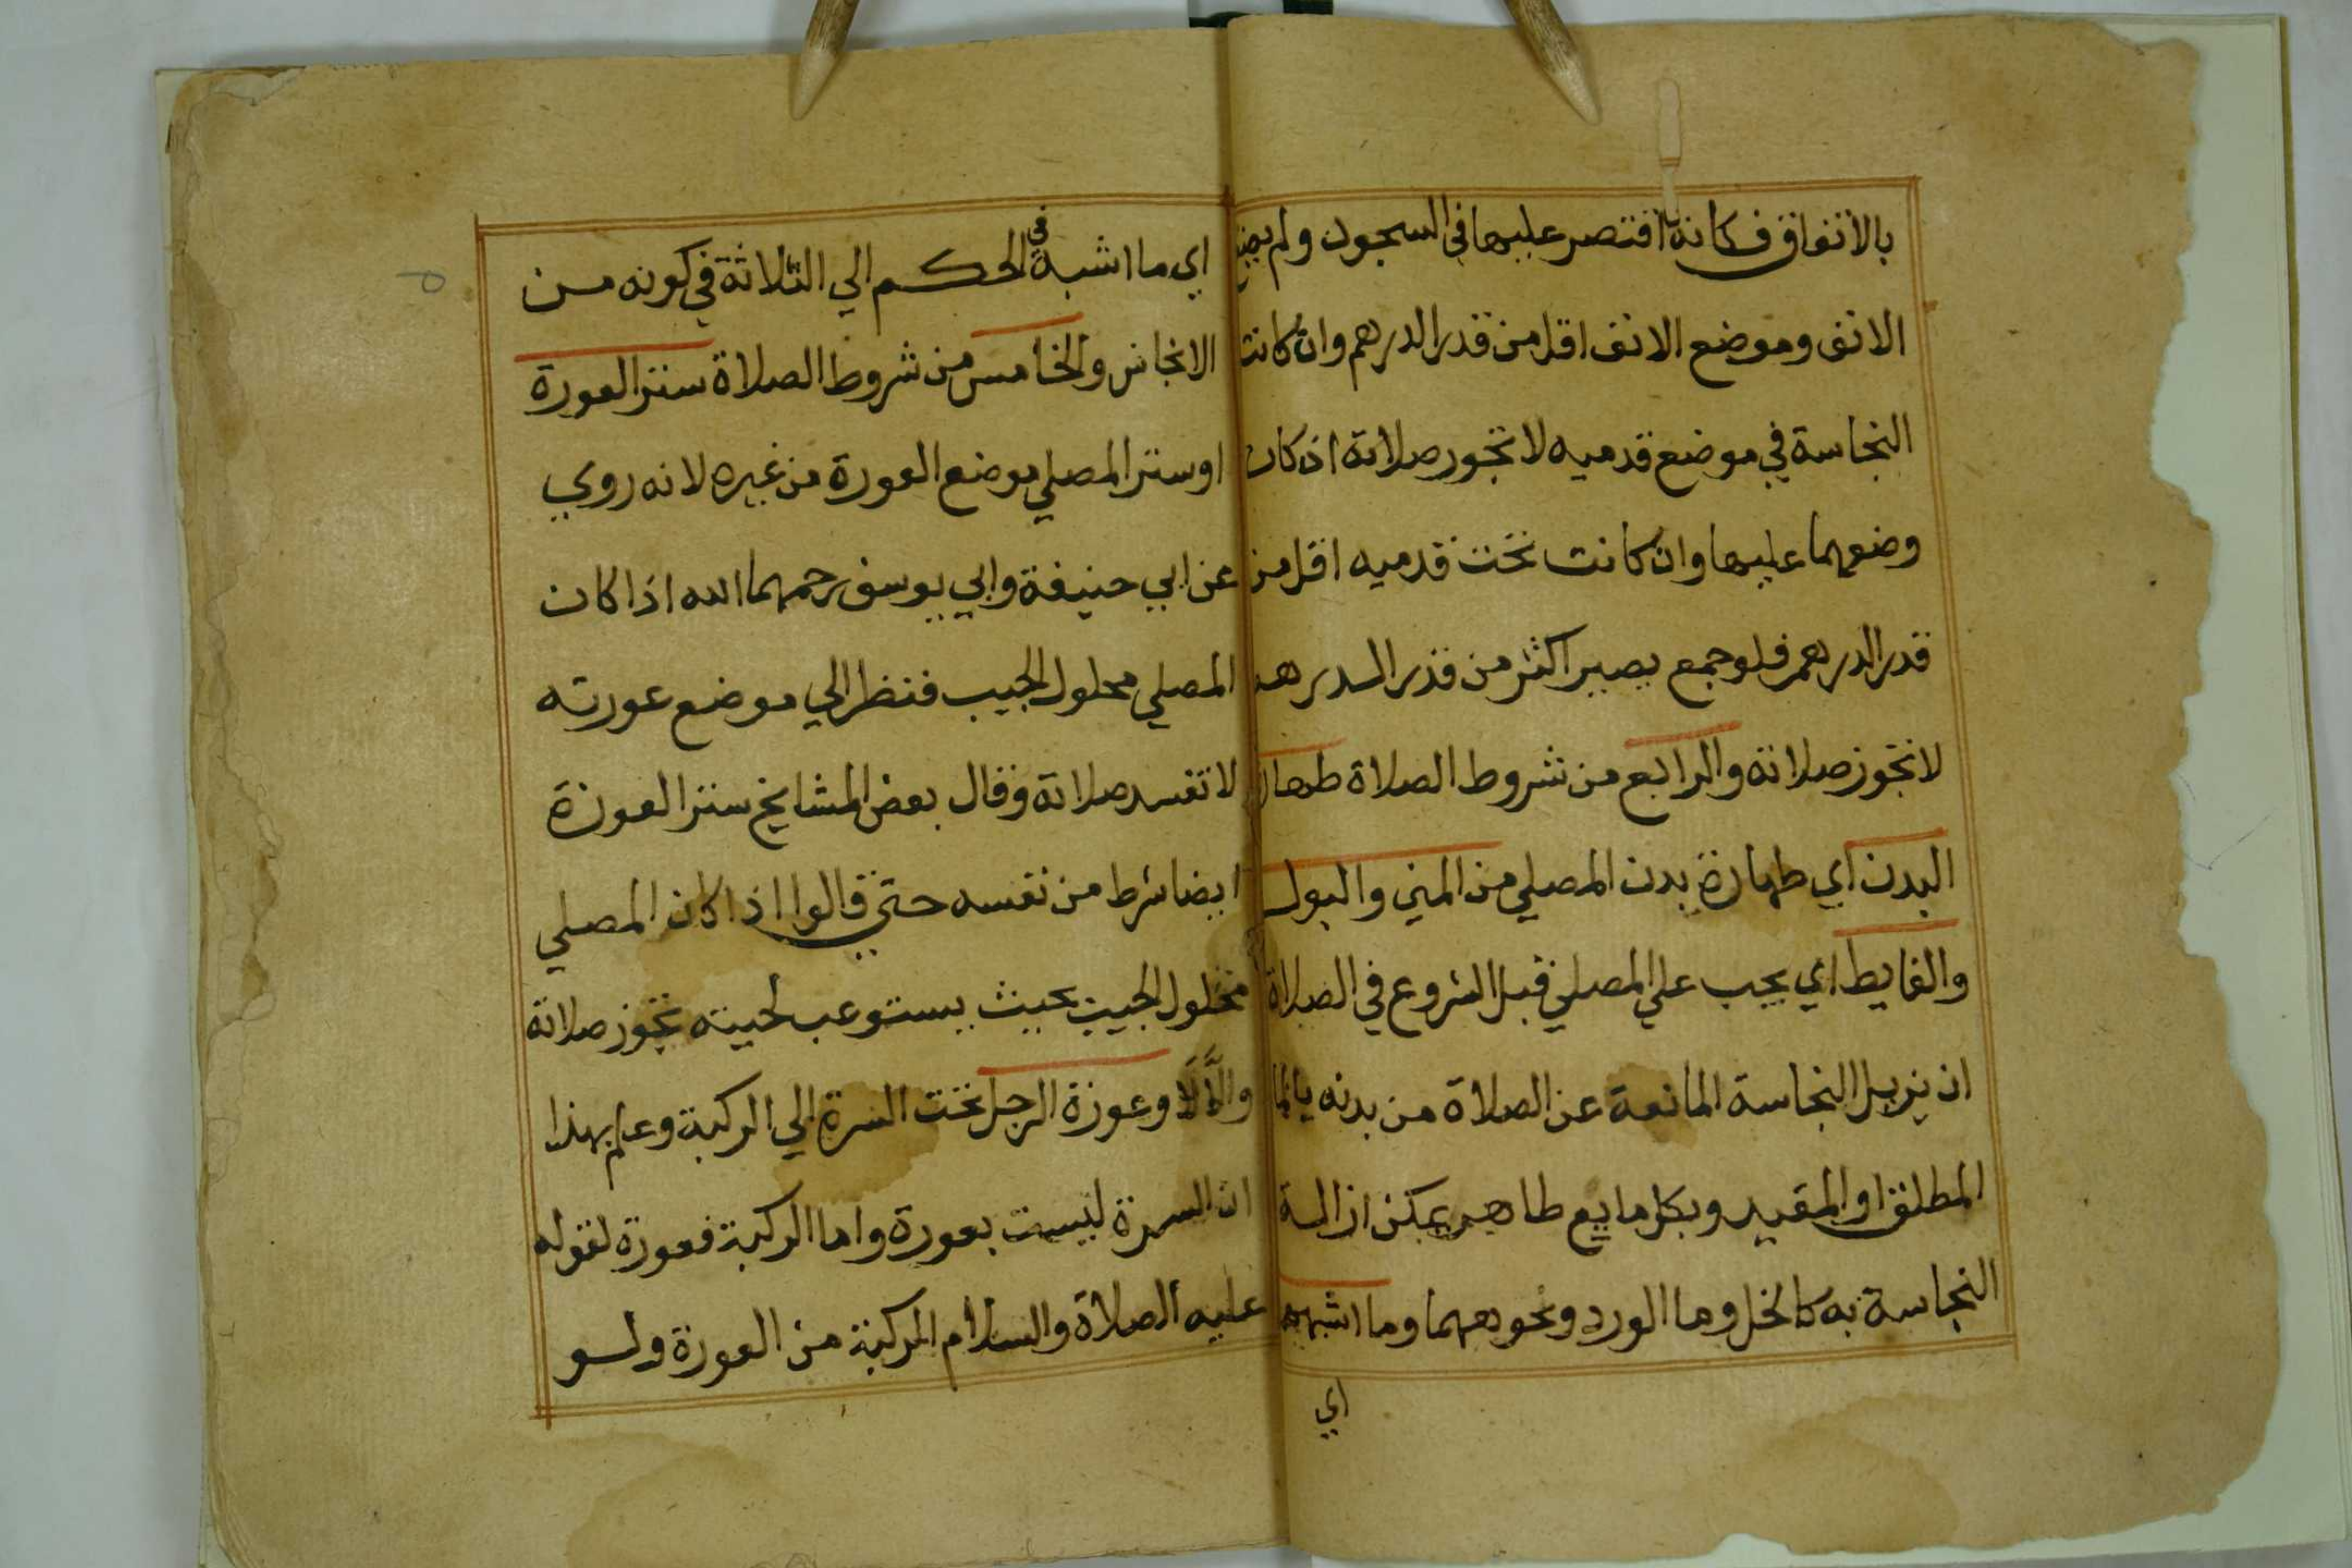 بالاتفاق فكانه اقتصر عليها في السجود ولم يضع
الانف وموضع الانف اقل من قدر الدرهم وان كانت
النجاسة في موضع قدميه لا تجوز صلاته اذ كان
وضعهما عليها وان كانت تحت قدميه اقل من
قدر الدرهم فلو جمع يصير اكثر من قدر الدرهم
لا تجوز صلاته والرابع من شروط الصلاة طهارة
البدن اي طهارة بدن المصلي من المني والبول
والغايط اي يجب علي المصلي قبل الشروع في الصلاة
ان يزيل النجاسة المانعة عن الصلاة من بدنه بالما
المطلق او المقيد وبكل مايع طاهر يمكن ازالة
النجاسة به كالخل وما الورد ونحوهما وما اشبهه
اي
اي ما اشبه في الحكم الي الثلاثة في كونه من
الانجاس والخامس من شروط الصلاة ستر العورة
او ستر المصلي موضع العورة من غيره لانه روي
عن ابي حنيفة وابي يوسف رحمهما الله اذا كان
المصلي محلول الجيب فنظر الي موضع عورته
لا تفسد صلاته وقال بعض المشايخ ستر العورة
ايضا شرط من نفسه حتي قالوا اذا كان المصلي
محلول الجيب بحيث يستوعب لحيته تجوز صلاته
والا لا وعورة الرجل تحت السرة الي الركبة وعلم بهذا
ان السرة ليست بعورة واما الركبة فعورة لقوله
عليه الصلاة والسلام الركبة من العورة ولو